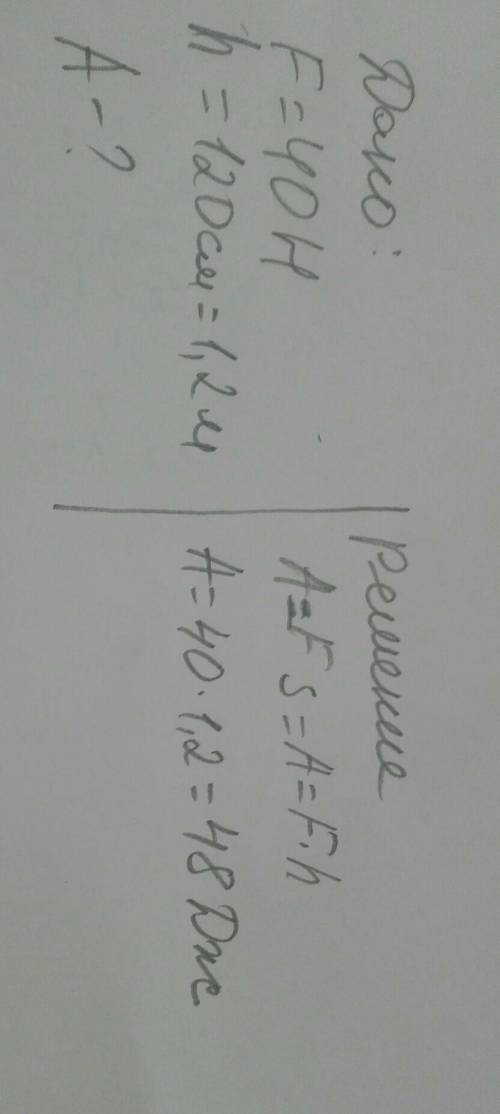 Дано:
F=40Н
h=120см=1,2м
A-?
Решение
A=F s=A=F·h
A=40·1,2=48Дж